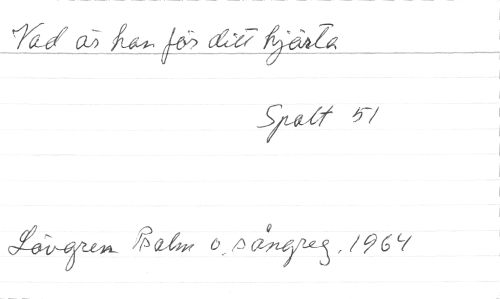 Vad är han för ditt hjärta
Spalt 51
Lövgren Psalm o. sångreg. 1964